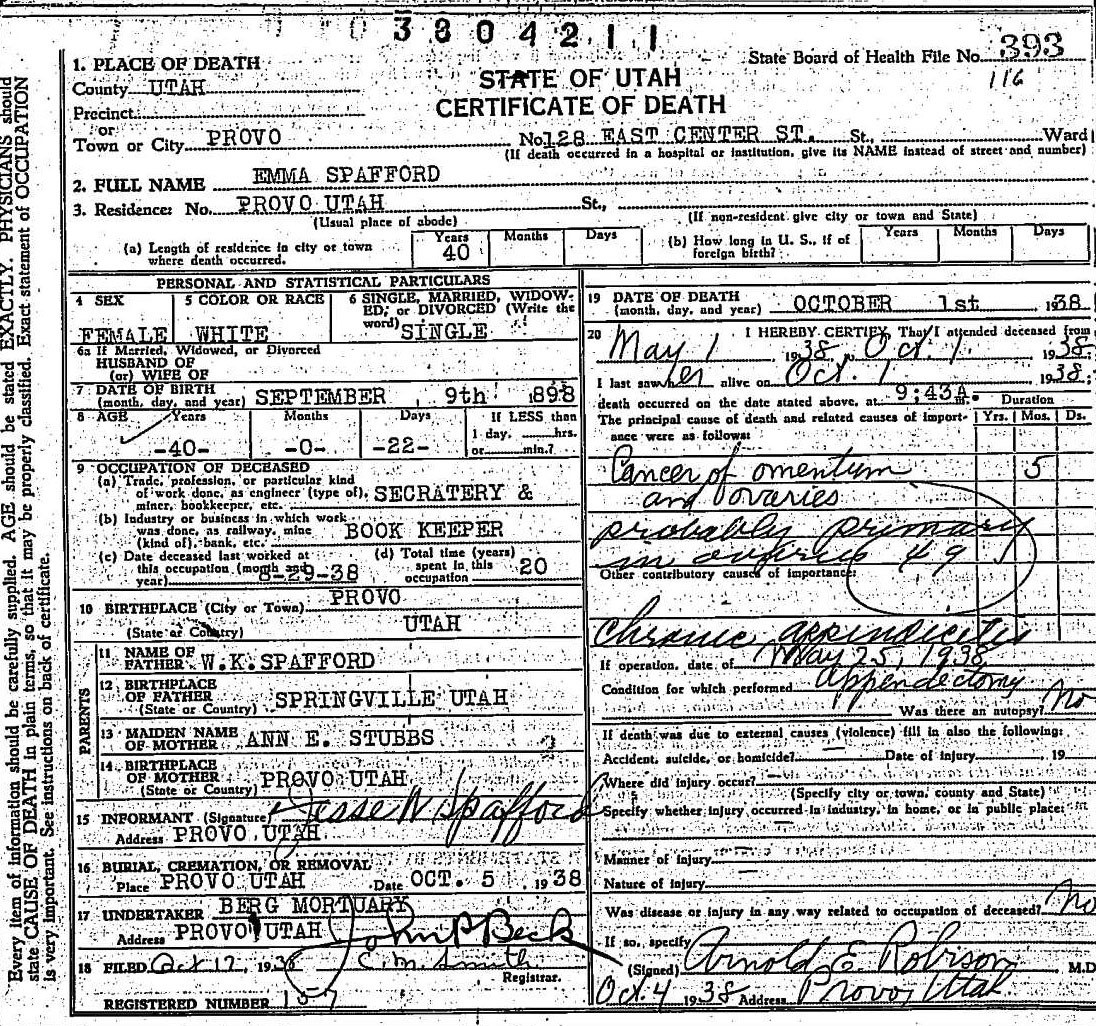 3804211
State Board of Health File No. 393
116
1. PLACE OF DEATH
County UTAH
STATE OF UTAH
CERTIFICATE OF DEATH
Precinct
or
Town or City PROVO No. 128 EAST CENTER ST. St., Ward
(If death occurred in a hospital or institution, give its NAME instead of street and number)
2. FULL NAME EMMA SPAFFORD
3. Residence: No. PROVO UTAH St.,
(Usual place of abode) (If non-resident give city or town and State)
(a) Length of residence in city or town where death occurred. Years 40 Months Days
(b) How long in U. S., if of foreign birth? Years Months Days
PERSONAL AND STATISTICAL PARTICULARS
4 SEX FEMALE
5 COLOR OR RACE WHITE
6 SINGLE, MARRIED, WIDOW-
ED, or DIVORCED (Write the
word) SINGLE
6a If Married, Widowed, or Divorced
HUSBAND OF
(or) WIFE OF
7 DATE OF BIRTH
(month, day, and year) SEPTEMBER 9th 1898
8 AGE Years Months Days If LESS than
-40- -0- -22- 1 day, hrs.
or min.?
9 OCCUPATION OF DECEASED
(a) Trade, profession, or particular kind
of work done, as engineer (type of), SECRATERY &
miner, bookkeeper, etc.
(b) Industry or business in which work
was done, as railway, mine BOOK KEEPER
(kind of), bank, etc.
(c) Date deceased last worked at
this occupation (month and
year) 8-29-38
(d) Total time (years)
spent in this
occupation 20
10 BIRTHPLACE (City or Town) PROVO
(State or Country) UTAH
PARENTS
11 NAME OF
FATHER W.K. SPAFFORD
12 BIRTHPLACE
OF FATHER SPRINGVILLE UTAH
(State or Country)
13 MAIDEN NAME
OF MOTHER ANN E. STUBBS
14 BIRTHPLACE
OF MOTHER PROVO UTAH
(State or Country)
15 INFORMANT (Signature) Jesse W Spafford
Address PROVO UTAH
16 BURIAL, CREMATION, OR REMOVAL
Place PROVO UTAH Date OCT. 5 1938
17 UNDERTAKER BERG MORTUARY
Address PROVO UTAH John P Beck
18 FILED Oct 12, 1938 C. M. Smith
Registrar.
REGISTERED NUMBER 157
19 DATE OF DEATH
(month, day, and year) OCTOBER 1st 1938
20 I HEREBY CERTIFY, That I attended deceased from
May 1 1938, Oct. 1 1938.
I last saw her alive on Oct. 1 1938;
death occurred on the date stated above, at 9:43A m.
Duration
The principal cause of death and related causes of import-
ance were as follows: Yrs. Mos. Ds.
Cancer of omentum 5
and ovaries
probably primary
in ovaries 49
Other contributory causes of importance:
Chronic appendicitis
If operation, date of May 25, 1938
Condition for which performed Appendectomy
Was there an autopsy? No
If death was due to external causes (violence) fill in also the following:
Accident, suicide, or homicide? — Date of injury , 19
Where did injury occur?
(Specify city or town, county and State)
Specify whether injury occurred in industry, in home, or in public place:
Manner of injury
Nature of injury
Was disease or injury in any way related to occupation of deceased? No
If so, specify
(Signed) Arnold E. Robison M.D.
Oct. 4 1938 Address Provo, Utah
Every item of information should be carefully supplied. AGE should be stated EXACTLY. PHYSICIANS should
state CAUSE OF DEATH in plain terms, so that it may be properly classified. Exact statement of OCCUPATION
is very important. See instructions on back of certificate.